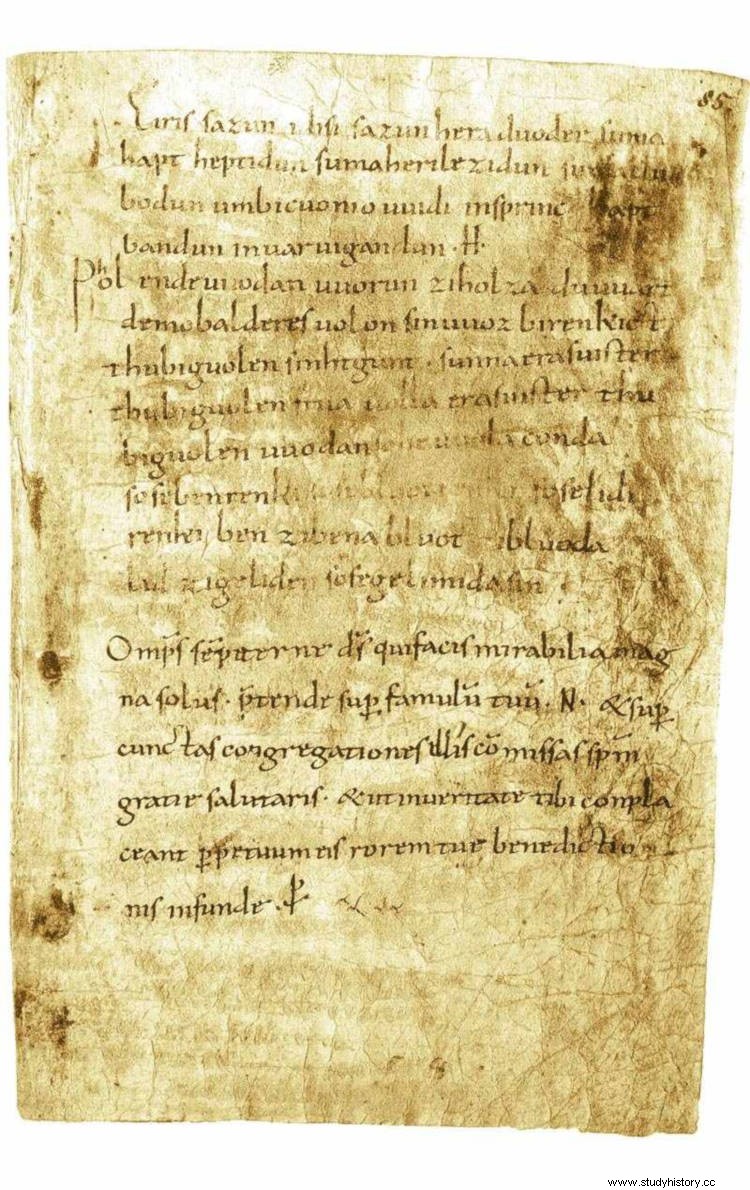 85
Eiris sazun idisi sazun hera duoder suma
hapt heptidun suma heri lezidun suma clu
bodun umbi cuonio uuidi insprinc hapt
bandun inuar uigandun · H·
Phol ende uuodan uuorun zi holza du uuart
demo balderes uolon sin uuoz birenkict
thu biguolen sinhtgunt · sunna era suister
thu biguolen friia uolla era suister thu
biguolen uuodan so he uuola conda
sose benrenki sose bluotrenki sose lidi
renki ben zi bena bluot zi bluoda
lid zi geliden sose gelimida sin
Omp̄s sēpiterne d̄s qui facis mirabilia mag
na solus · p̄tende sup̱ famulū tuū · N · & sup̱
cunctas congregationes illis cōmissas sp̄m
gratie salutaris · & ut inueritate tibi conpla
ceant p̱petuum eis rorem tue benedictio
nis infunde · ꝑ
www.studyhistory.cc